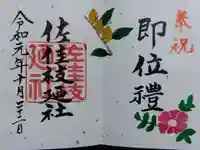 奉祝
即位禮
佐佳枝廼社
佐佳枝
廼社
令和元年十月二十二日